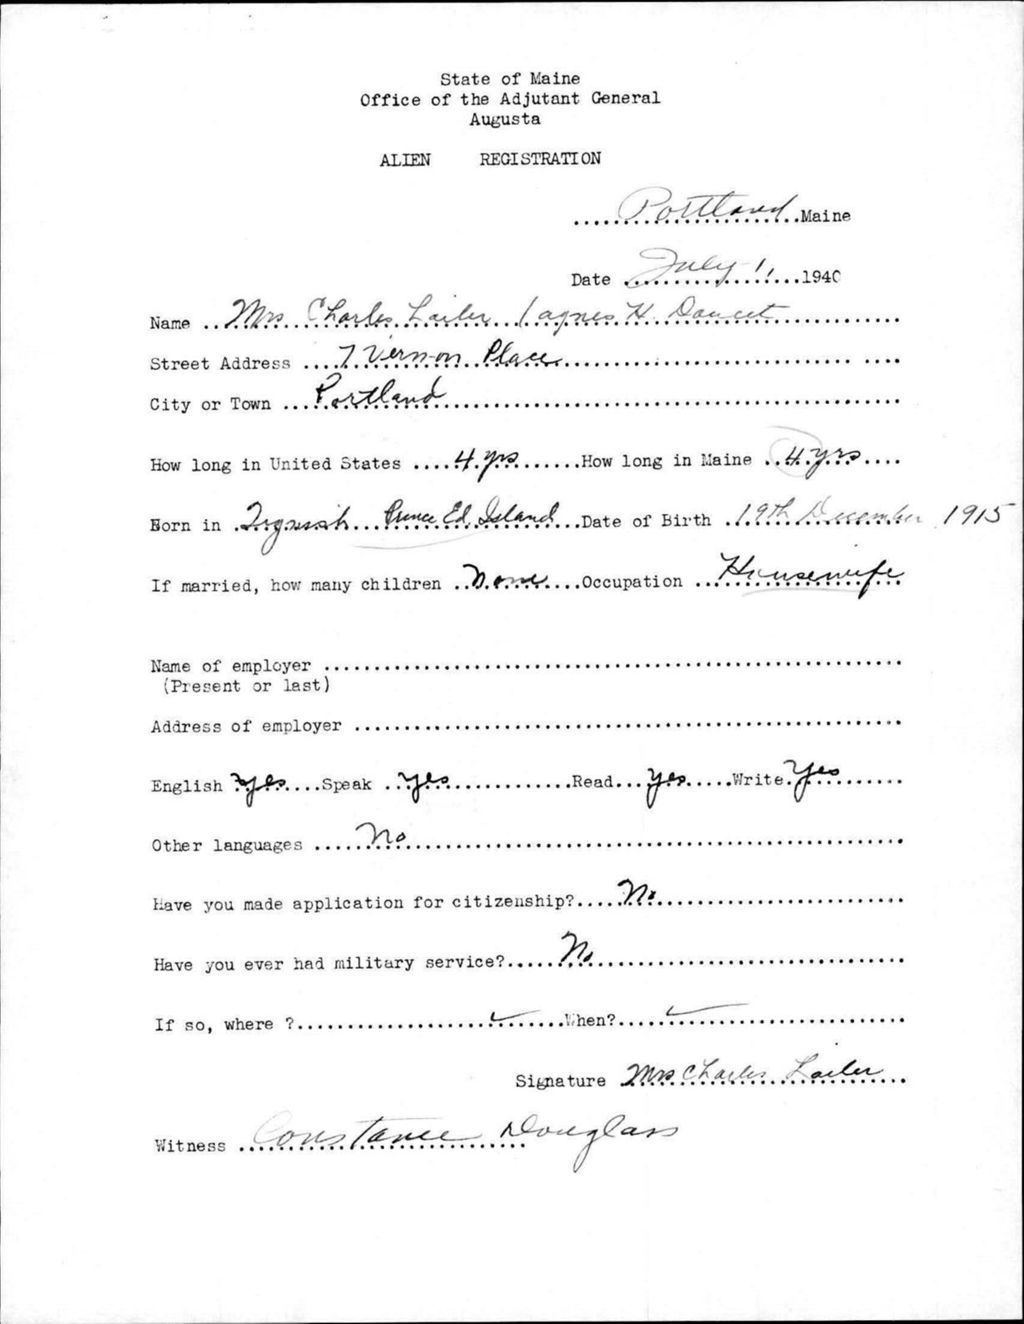 State of Maine
Office of the Adjutant General
Augusta
ALIEN REGISTRATION
.....Portland.....Maine
Date .....July 1,.....1940
Name ..Mrs. Charles Lailer (agnes H. Doucet
Street Address ....7 Vernon Place
City or Town ....Portland
How long in United States ....4 yrs.......How long in Maine ..4 yrs....
Born in .Tignish...Prince Ed. Island...Date of Birth .19th December 1915
If married, how many children ..None....Occupation ...Housewife
Name of employer
(Present or last)
Address of employer
English Yes....Speak ..Yes..............Read...Yes.....Write.Yes
Other languages .....No
Have you made application for citizenship?.....No
Have you ever had military service?.....No
If so, where ?....................✓.......When?.....✓
Signature Mrs Charles Lailer
Witness Constance Douglass